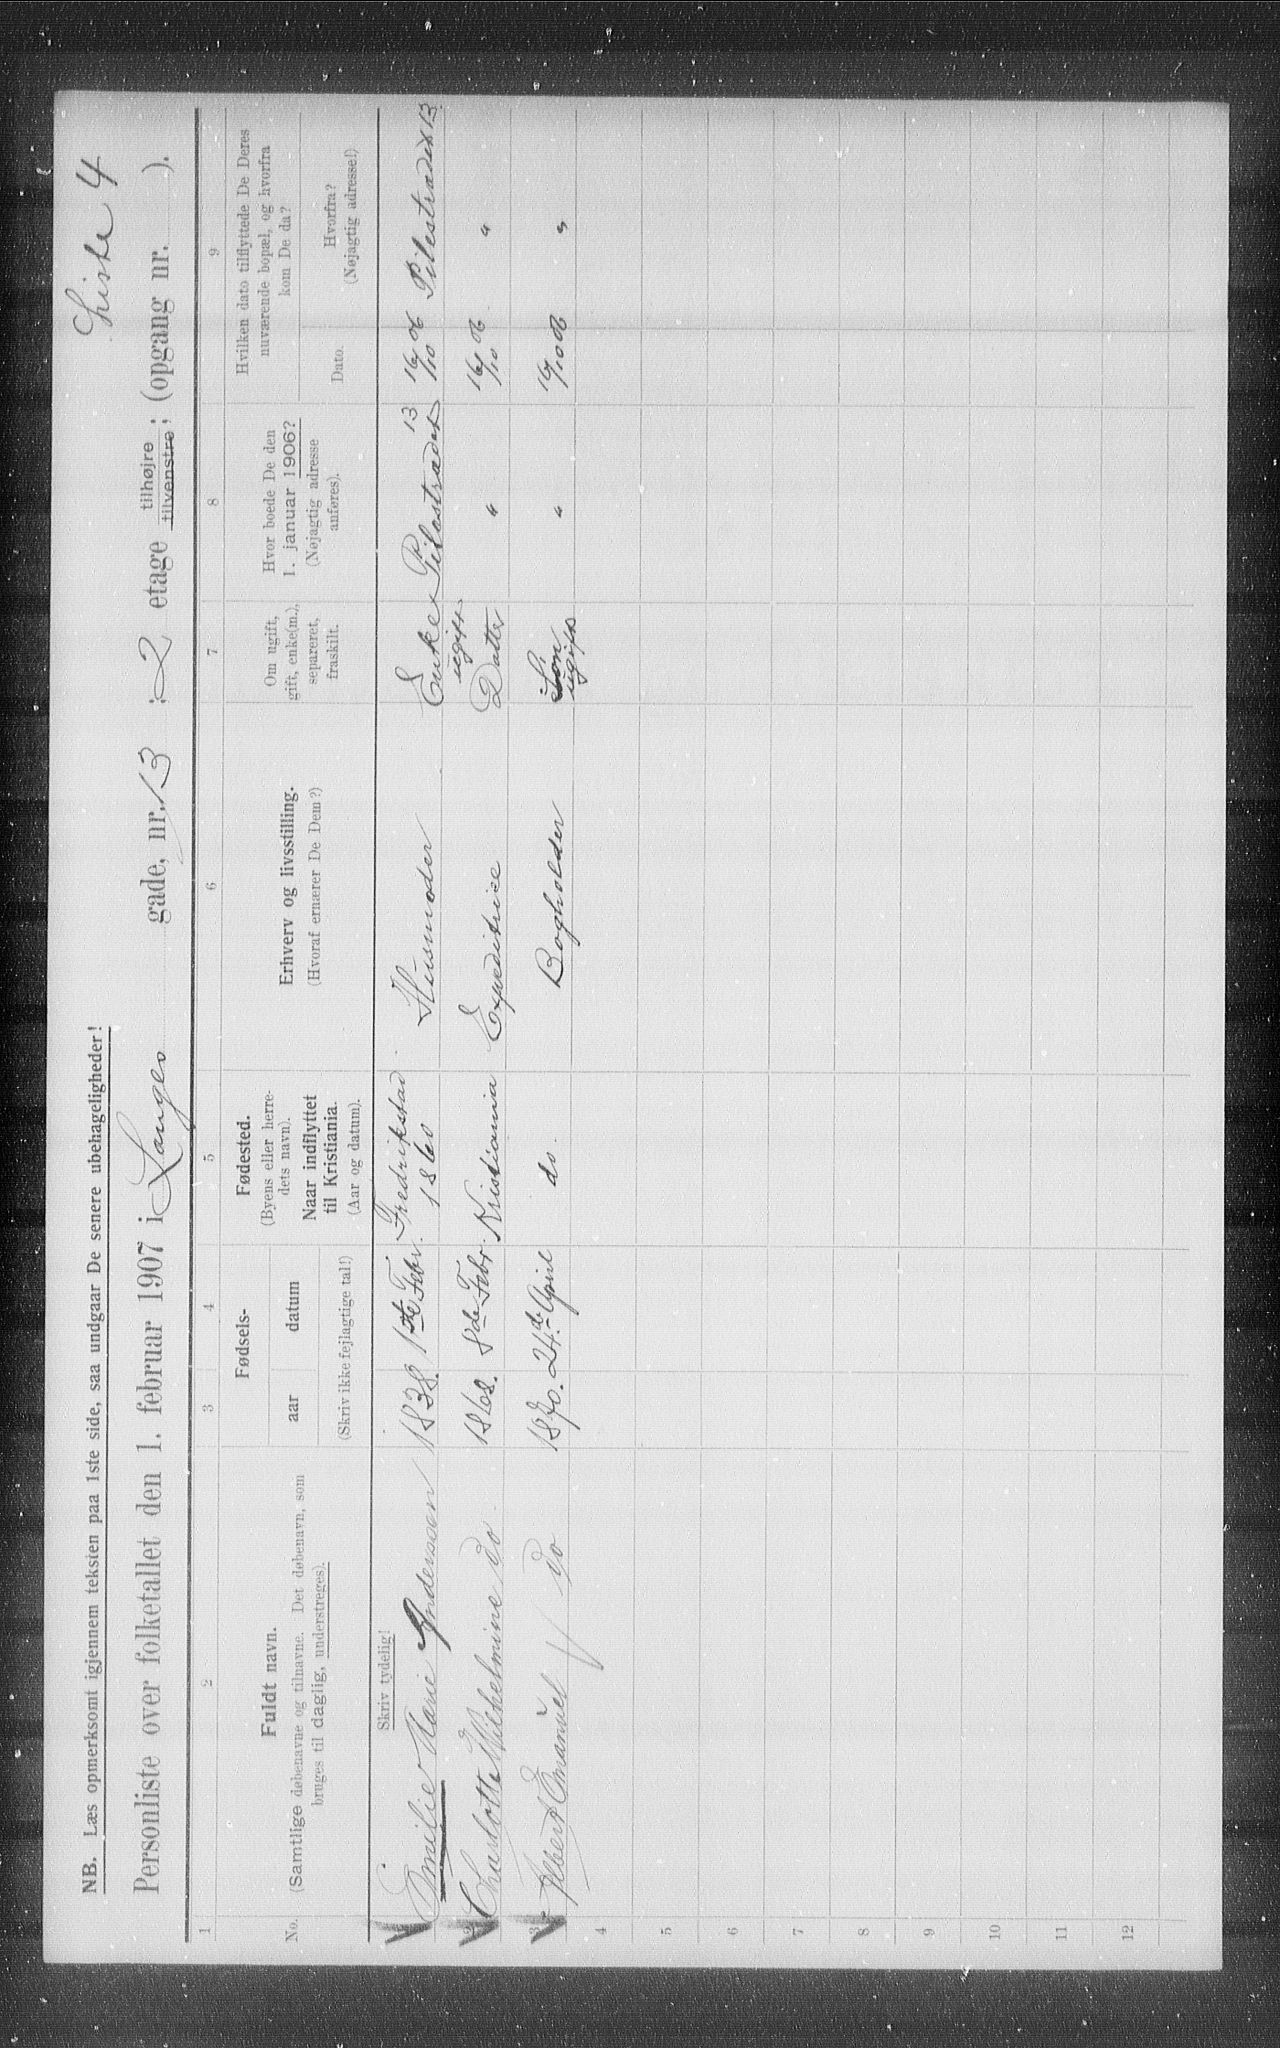 Liste 4
NB. Læs opmerksomt igjennem teksten paa 1ste side, saa undgaar De senere ubehageligheder!
Personliste over folketallet den 1. februar 1907 i Langes gade, nr. 13 ; 2 etage tilhøjre tilvenstre; (opgang nr. ).
1 2 3 4 5 6 7 8 9
No.
Fuldt navn.
(Samtlige døbenavne og tilnavne. Det døbenavn, som
bruges til daglig, understreges).
Fødsels-
aar datum
(Skriv ikke fejlagtige tal!)
Fødested.
(Byens eller herre-
dets navn).
Naar indflyttet
til Kristiania.
(Aar og datum).
Erhverv og livsstilling.
(Hvoraf ernærer De Dem?)
Om ugift,
gift, enke(m.),
separeret,
fraskilt.
Hvor boede De den
1. januar 1906?
(Nøjagtig adresse
anføres).
Hvilken dato tilflyttede De Deres
nuværende bopæl, og hvorfra
kom De da?
Dato.
Hvorfra?
(Nøjagtig adresse!)
Skriv tydelig!
Emilie Marie Anderssen 1838. 1ste Febr. Fredrikstad 1860 Husmoder Enke Pilestrædet 13 16/10 06 Pilestrædet 13
2 Charlotte Wilhelmine do 1868. 8de Febr. Kristiania Expeditrice ugift Datter " 16/10 06 "
3 Albert Emanuel do 1870. 24de April do. Bogholder Søn ugift " 16/10 06 "
4
5
6
7
8
9
10
11
12